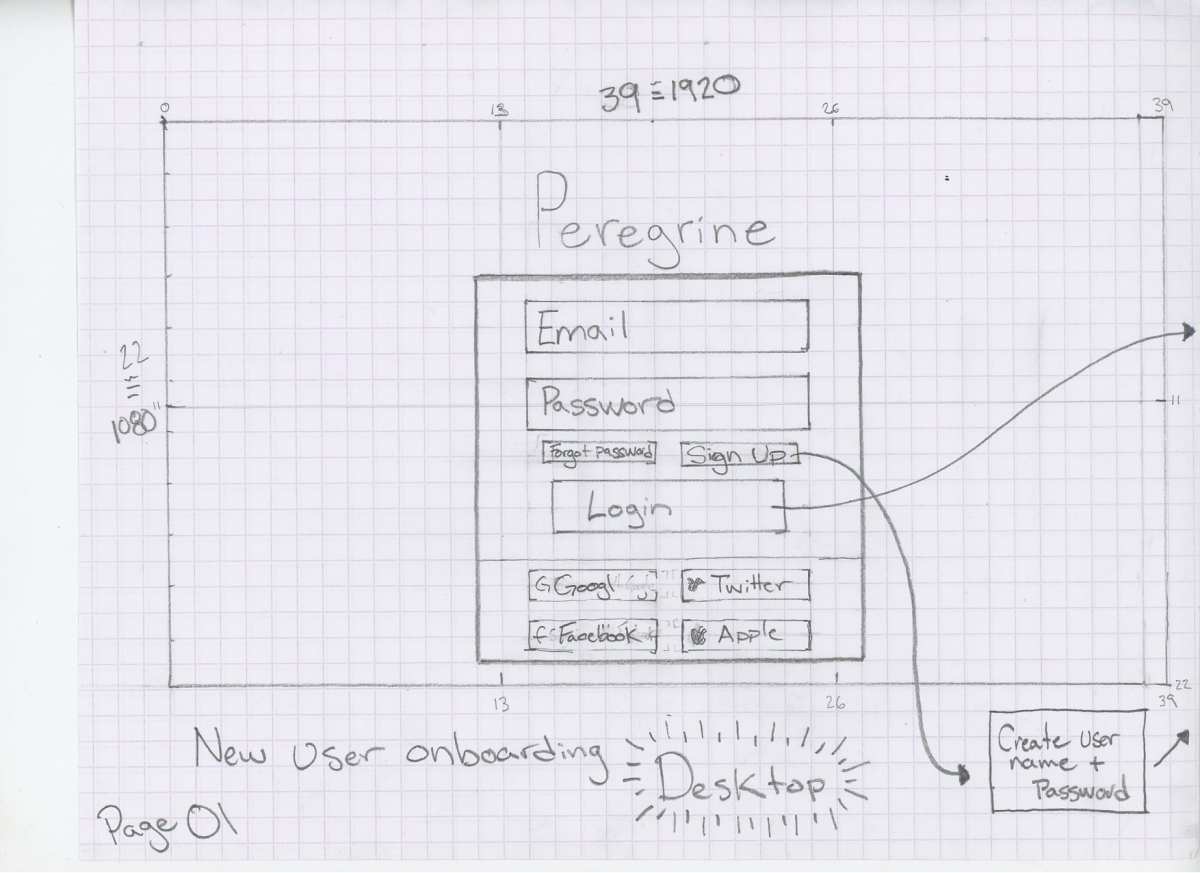 39 = 1920
0 13 26 39
Peregrine
Email
22 = 1080
Password
11 11
Forgot Password Sign Up
Login
G Googl Twitter
f Facebook Apple
22
13 26 39
New User onboarding Desktop
Create User
name +
Password
Page 01